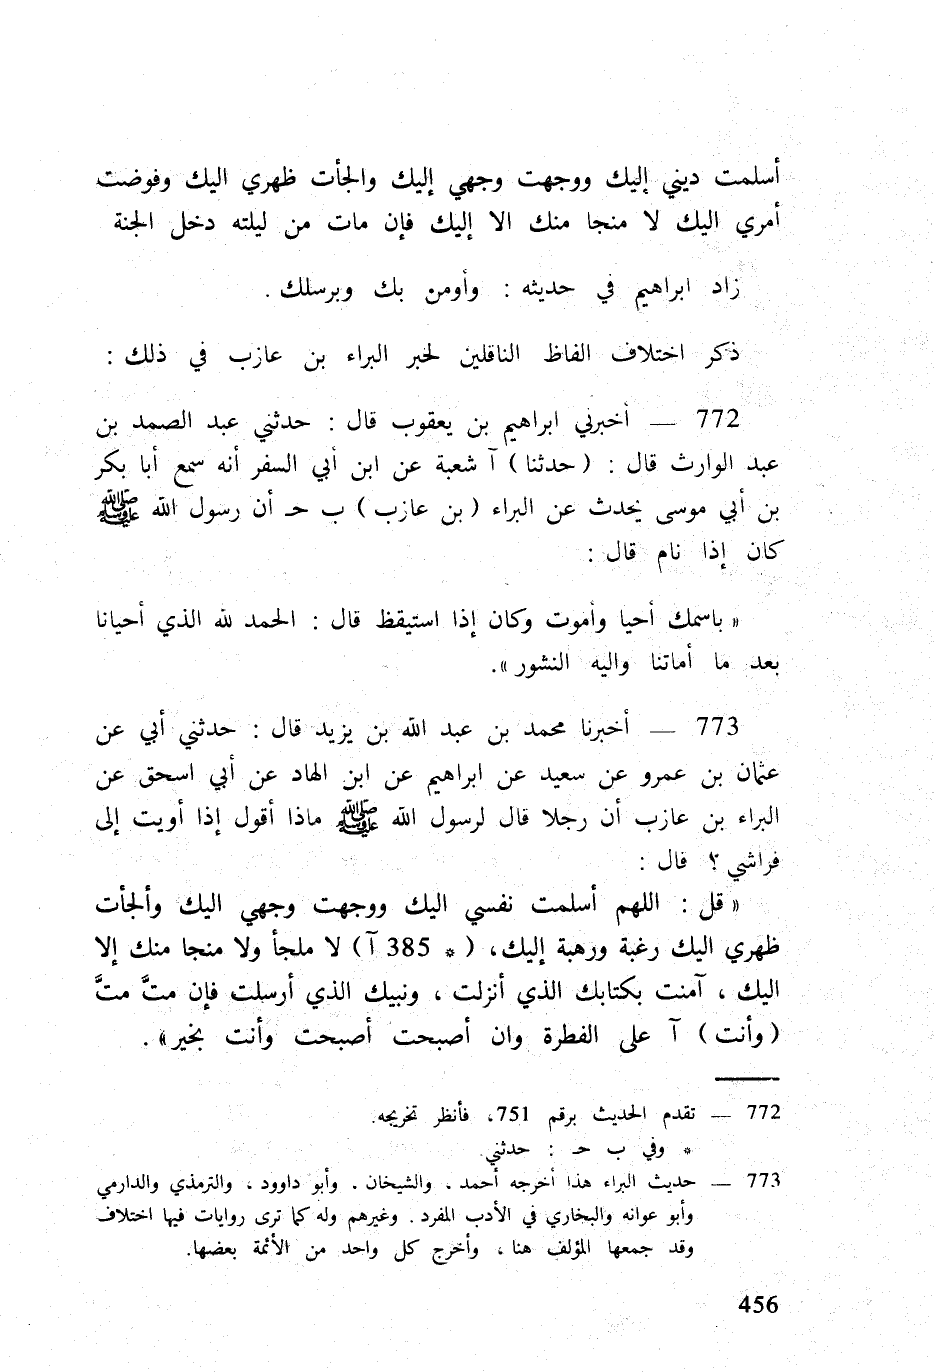 أسلمت ديني إليك ووجهت وجهي إليك والجأت ظهري اليك وفوضت
أمري اليك لا منجا منك الا إليك فإن مات من ليلته دخل الجنة
زاد ابراهيم في حديثه : وأومن بك وبرسلك .
ذكر اختلاف الفاظ الناقلين لخبر البراء بن عازب في ذلك :
772 — أخبرني ابراهيم بن يعقوب قال : حدثني عبد الصمد بن
عبد الوارث قال : ( حدثنا ) آ شعبة عن ابن أبي السفر أنه سمع أبا بكر
بن أبي موسى يحدث عن البراء ( بن عازب ) ب حـ أن رسول الله ﷺ
كان إذا نام قال :
« باسمك أحيا وأموت وكان إذا استيقظ قال : الحمد لله الذي أحيانا
بعد ما أماتنا واليه النشور ».
773 — أخبرنا محمد بن عبد الله بن يزيد قال : حدثني أبي عن
عثمان بن عمرو عن سعيد عن ابراهيم عن ابن الهاد عن أبي اسحق عن
البراء بن عازب أن رجلا قال لرسول الله ﷺ ماذا أقول إذا أويت إلى
فراشي ؟ قال :
« قل : اللهم أسلمت نفسي اليك ووجهت وجهي اليك وألجأت
ظهري اليك رغبة ورهبة إليك، ( * 385 آ ) لا ملجأ ولا منجا منك إلا
اليك ، آمنت بكتابك الذي أنزلت ، ونبيك الذي أرسلت فإن متَّ متَّ
( وأنت ) آ على الفطرة وان أصبحت أصبحت وأنت بخير» .
772 — تقدم الحديث برقم 751، فأنظر تخريجه.
* وفي ب حـ : حدثني
773 — حديث البراء هذا أخرجه أحمد . والشيخان . وأبو داوود ، والترمذي والدارمي
وأبو عوانه والبخاري في الأدب المفرد . وغيرهم وله كما ترى روايات فيها اختلاف
وقد جمعها المؤلف هنا ، وأخرج كل واحد من الأئمة بعضها.
456